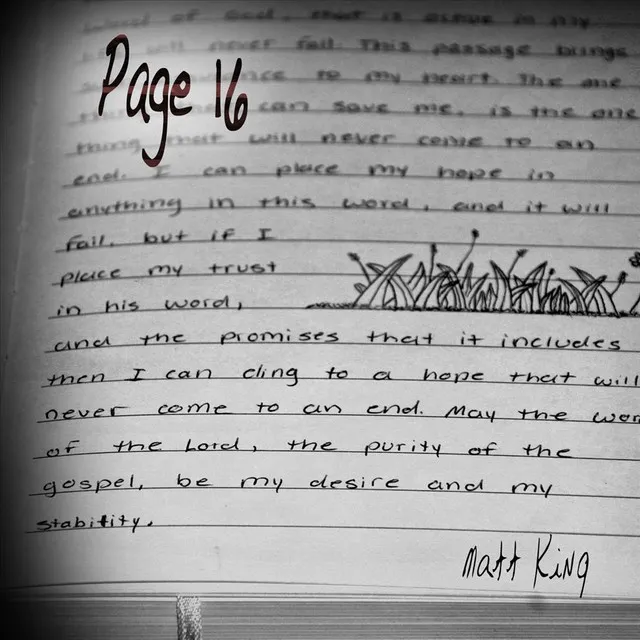 of God, that is
will never fail. This passage brings
Page 16
to my heart. The one
can save me, is the one
thing that will never come to an
end. I can place my hope in
anything in this word, and it will
fail, but if I
place my trust
in his word,
and the promises that it includes
then I can cling to a hope that will
never come to an end. May the wor
of the Lord, the purity of the
gospel, be my desire and my
stability.
Matt King